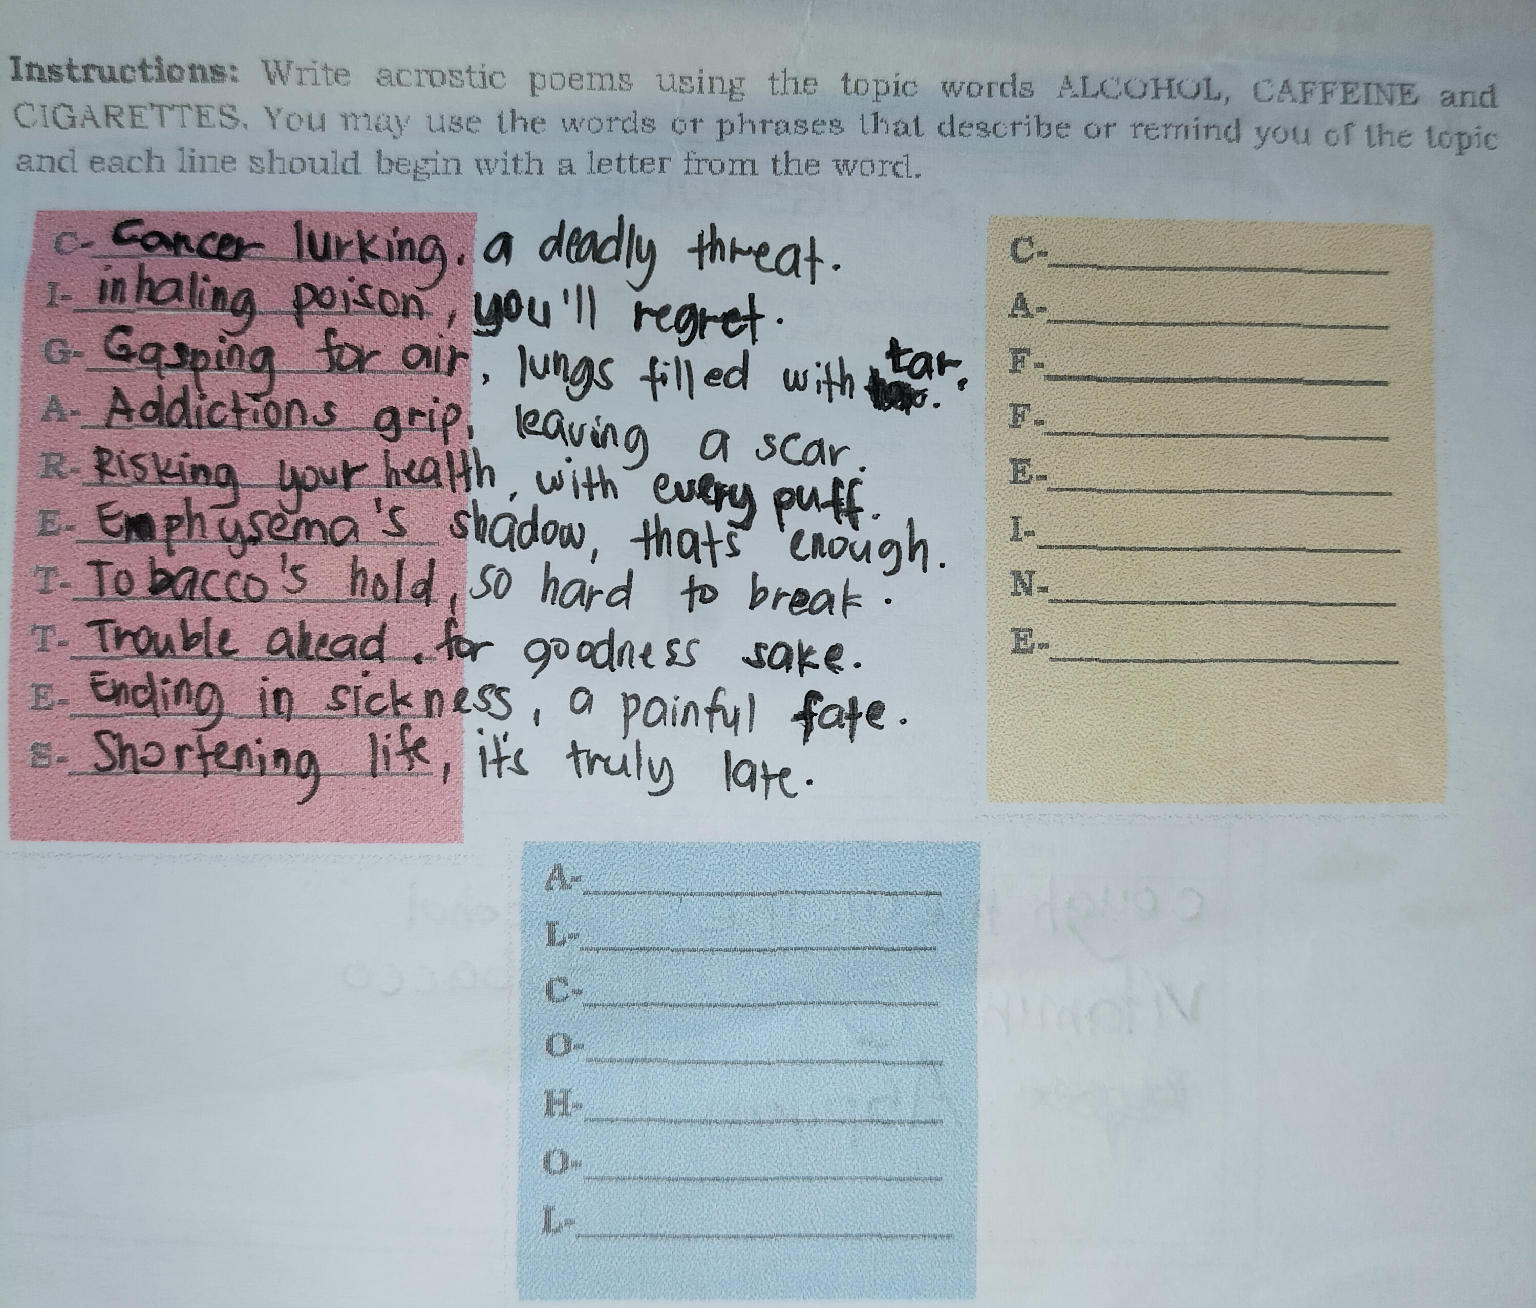 Instructions: Write acrostic poems using the topic words ALCOHOL, CAFFEINE and
CIGARETTES. You may use the words or phrases that describe or remind you of the topic
and each line should begin with a letter from the word.
C- Cancer lurking, a deadly threat.
I- inhaling poison, you'll regret.
G- Gasping for air, lungs filled with tar.
A- Addictions grip, leaving a scar.
R- Risking your health, with every puff.
E- Emphysema's shadow, thats enough.
T- Tobacco's hold, so hard to break.
T- Trouble ahead, for goodness sake.
E- Ending in sickness, a painful fate.
S- Shortening life, it's truly late.
C-
A-
F-
F-
E-
I-
N-
E-
A-
L-
C-
O-
H-
O-
L-